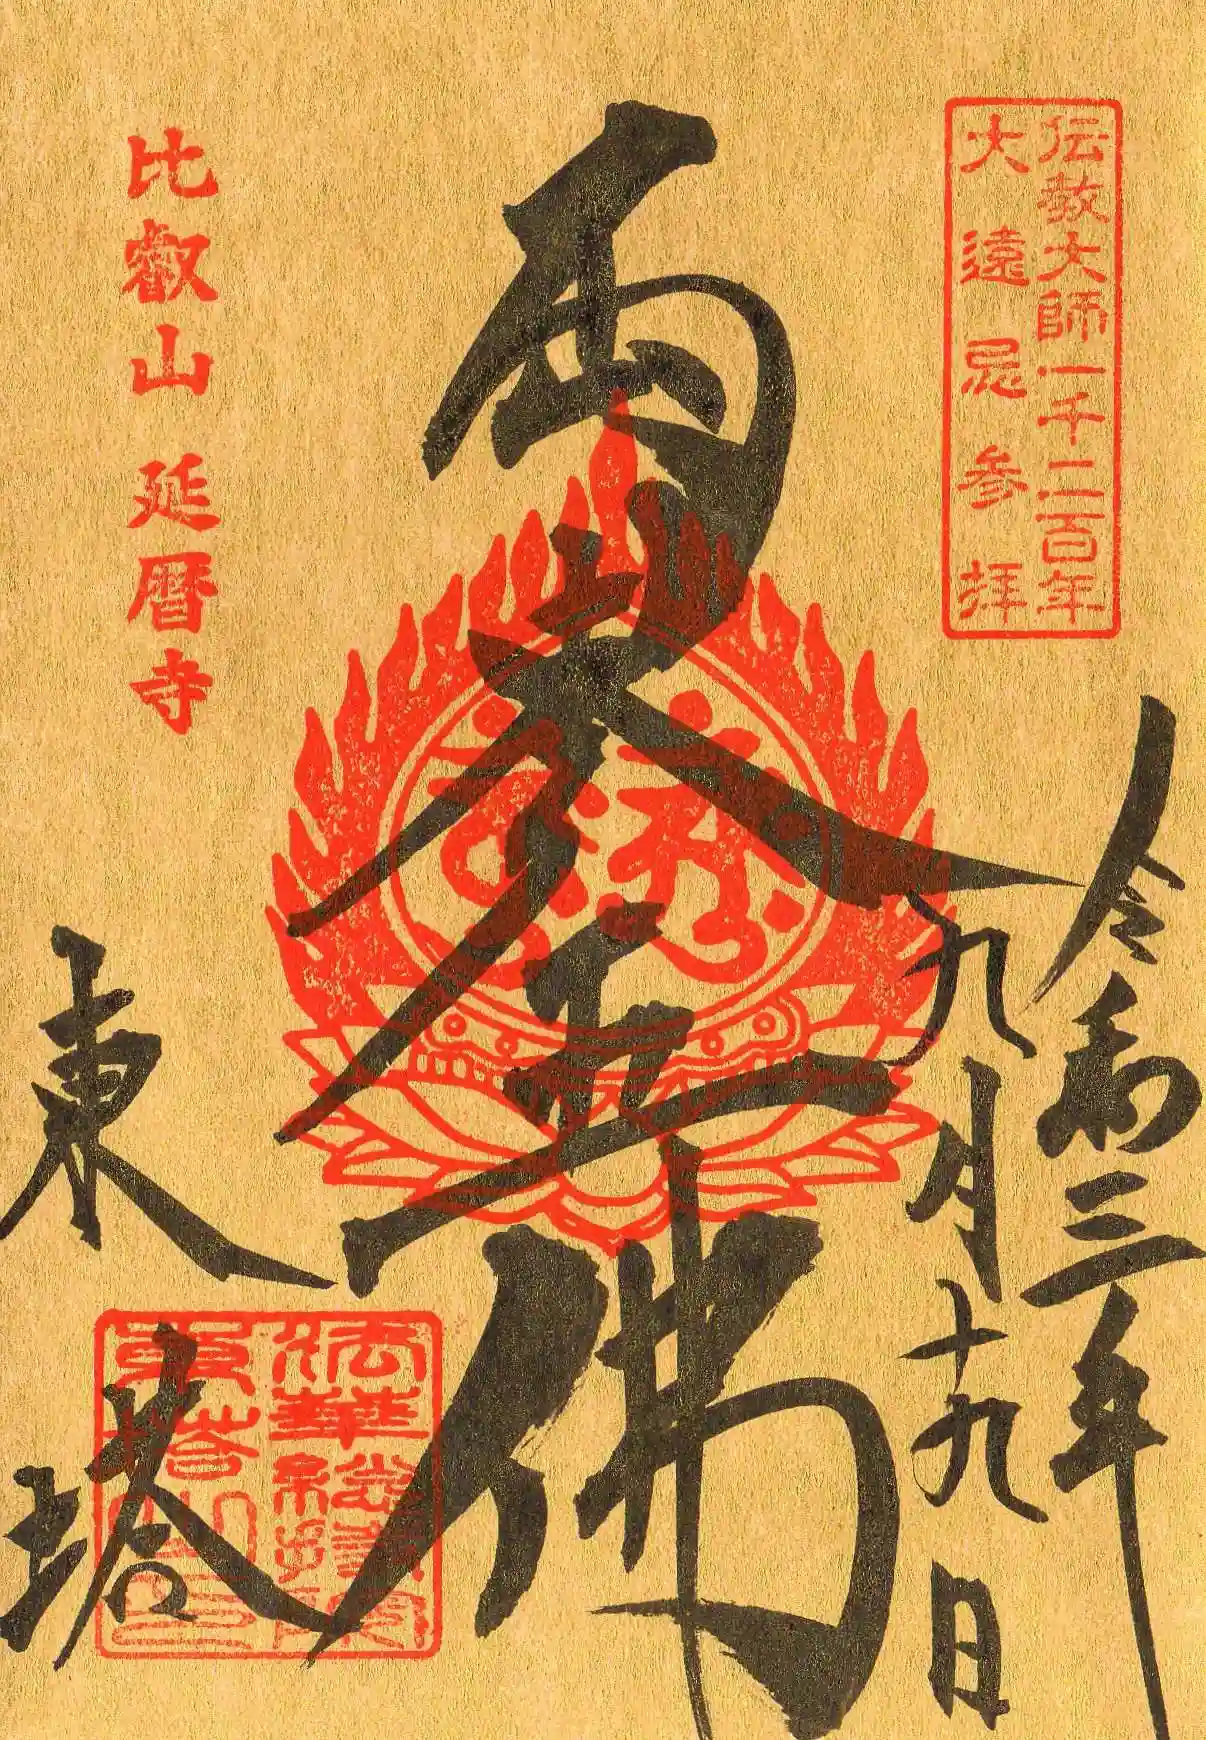 伝教大師一千二百年
大遠忌参拝
令和三年
九月十九日
五佛
比叡山 延暦寺
東塔
法華總持院
東塔之印